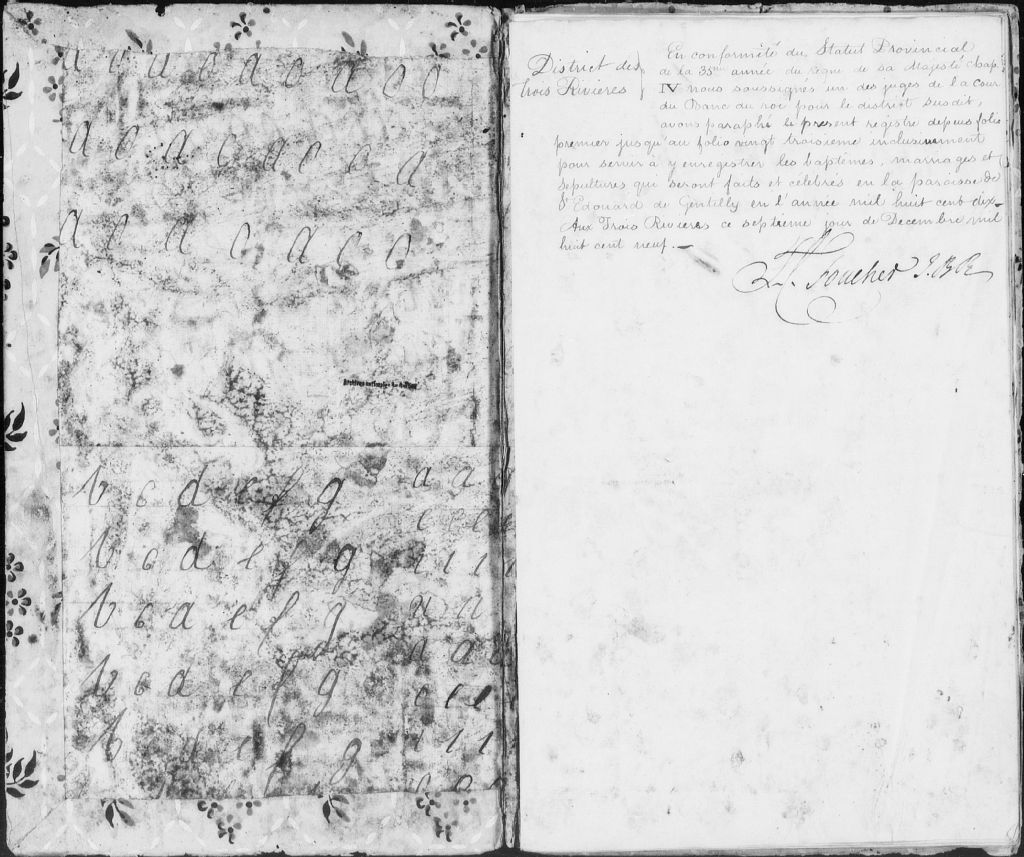 a c a c a c a c c
a c a c a c c a
a c a c a c c
Archives nationales du Québec
b c d e f g a a
c c c c
b c d e f g i i i
b c d e f g a a
a a
b c d e f g c c c
b c d e f g i i i
District des
trois Rivieres
En conformité du Statut Provincial
de la 35me année du règne de sa Majesté chap.
IV nous soussignés un des juges de la cour
du Banc du roi pour le district susdit,
avons paraphé le present registre depuis folio
premier jusqu'au folio vingt troisieme inclusivement
pour servir à y enregistrer les baptêmes, marriages et
sepultures qui seront faits et célébrés en la paroisse de
St Edouard de Gentilly en l'année mil huit cent dix
Aux Trois Rivieres ce septieme jour de Decembre mil
huit cent neuf.
L. Foucher J.B.R.